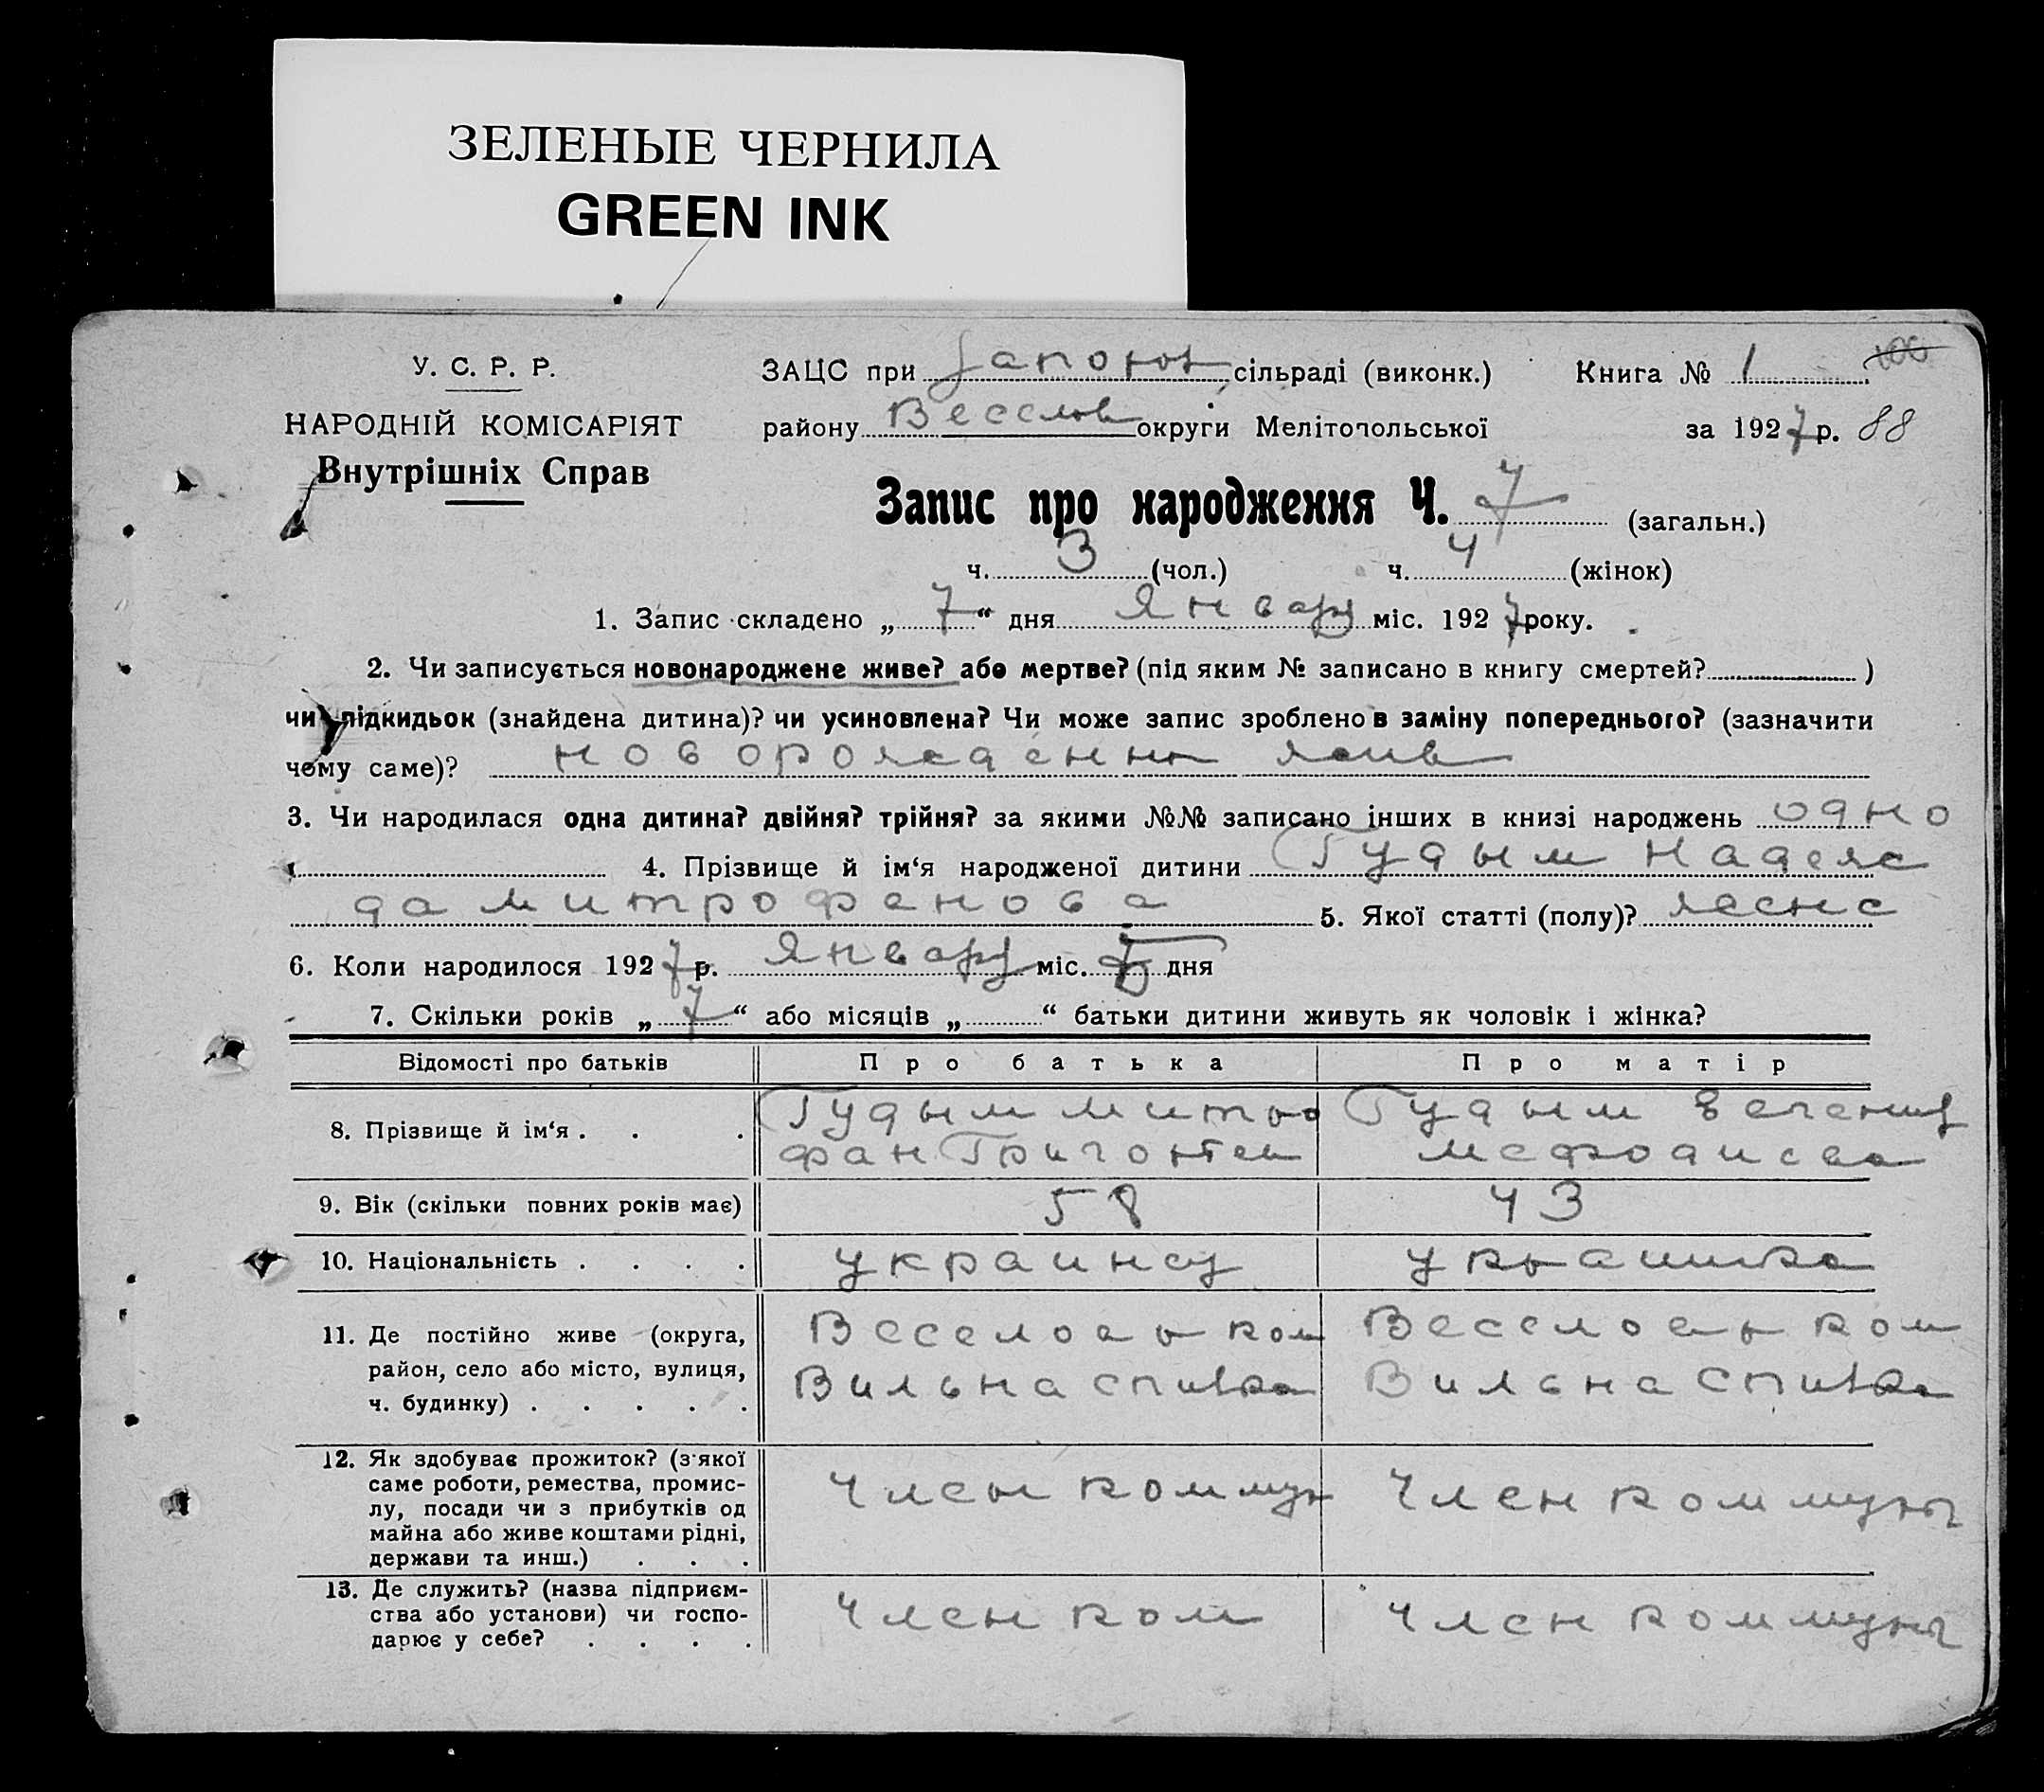 ЗЕЛЕНЫЕ ЧЕРНИЛА
GREEN INK
У. С. Р. Р.
НАРОДНІЙ КОМІСАРІЯТ
Внутрішніх Справ
ЗАЦС при Запорож сільраді (виконк.) Книга № 1
району Веселов округи Мелітопольської за 1927 р. 88
Запис про народження Ч. 7 (загальн.)
ч. 3 (чол.) ч. 4 (жінок)
1. Запис складено „ 7 “ дня Январ міс. 1927 року.
2. Чи записується новонароджене живе? або мертве? (під яким № записано в книгу смертей? )
чи підкидьок (знайдена дитина)? чи усиновлена? Чи може запис зроблено в заміну попереднього? (зазначити
чему саме)? новорожденн жив
3. Чи народилася одна дитина? двійня? трійня? за якими №№ записано інших в книзі народжень одно
4. Прізвище й ім‘я народженої дитини Гудым Надеж
да митрофанова 5. Якої статті (полу)? женс
6. Коли народилося 1927 р. Январ міс. дня
7. Скільки років „ 7 “ або місяців „ “ батьки дитини живуть як чоловік і жінка?
Відомості про батьків Про батька Про матір
8. Прізвище й ім‘я . . . Гудым митро Гудым
фан Григор мефодиева
9. Вік (скільки повних років має) 58 43
10. Національність . . . . украинец украинка
11. Де постійно живе (округа, Веселов ком Веселов ком
район, село або місто, вулиця, Вильна спивка Вильна Спивка
ч. будинку) . . . . .
12. Як здобуває прожиток? (з якої
саме роботи, ремества, промис- Член коммун Член коммуны
лу, посади чи з прибутків од
майна або живе коштами рідні,
держави та инш.) . . .
13. Де служить? (назва підприєм- Член ком Член коммуны
ства або установи) чи госпо-
дарює у себе? . . . .